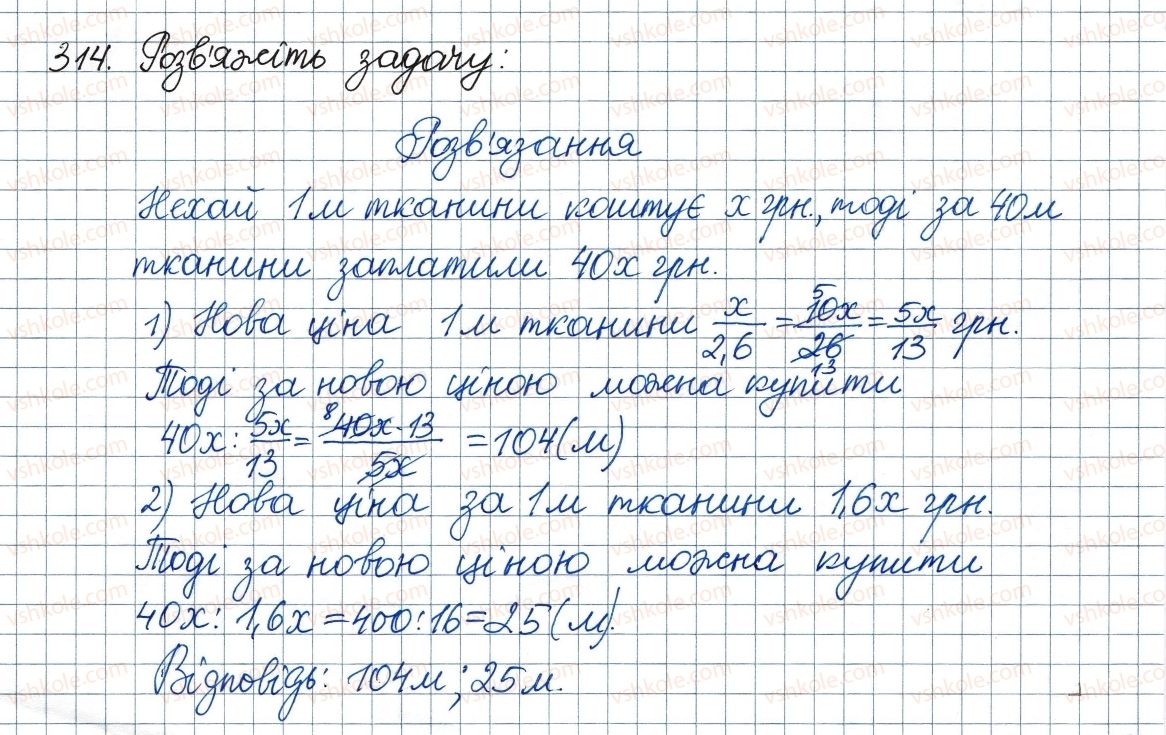 314. Розв'яжіть задачу:
Розв'язання
Нехай 1м тканини коштує x грн., тоді за 40м
тканини заплатили 40x грн.
1) Нова ціна 1м тканини x/2,6 = 10x/26 = 5x/13 грн.
Тоді за новою ціною можна купити
40x : 5x/13 = 40x·13/5x = 104(м)
2) Нова ціна за 1м тканини 1,6x грн.
Тоді за новою ціною можна купити
40x : 1,6x = 400:16 = 25(м).
Відповідь: 104м; 25м.